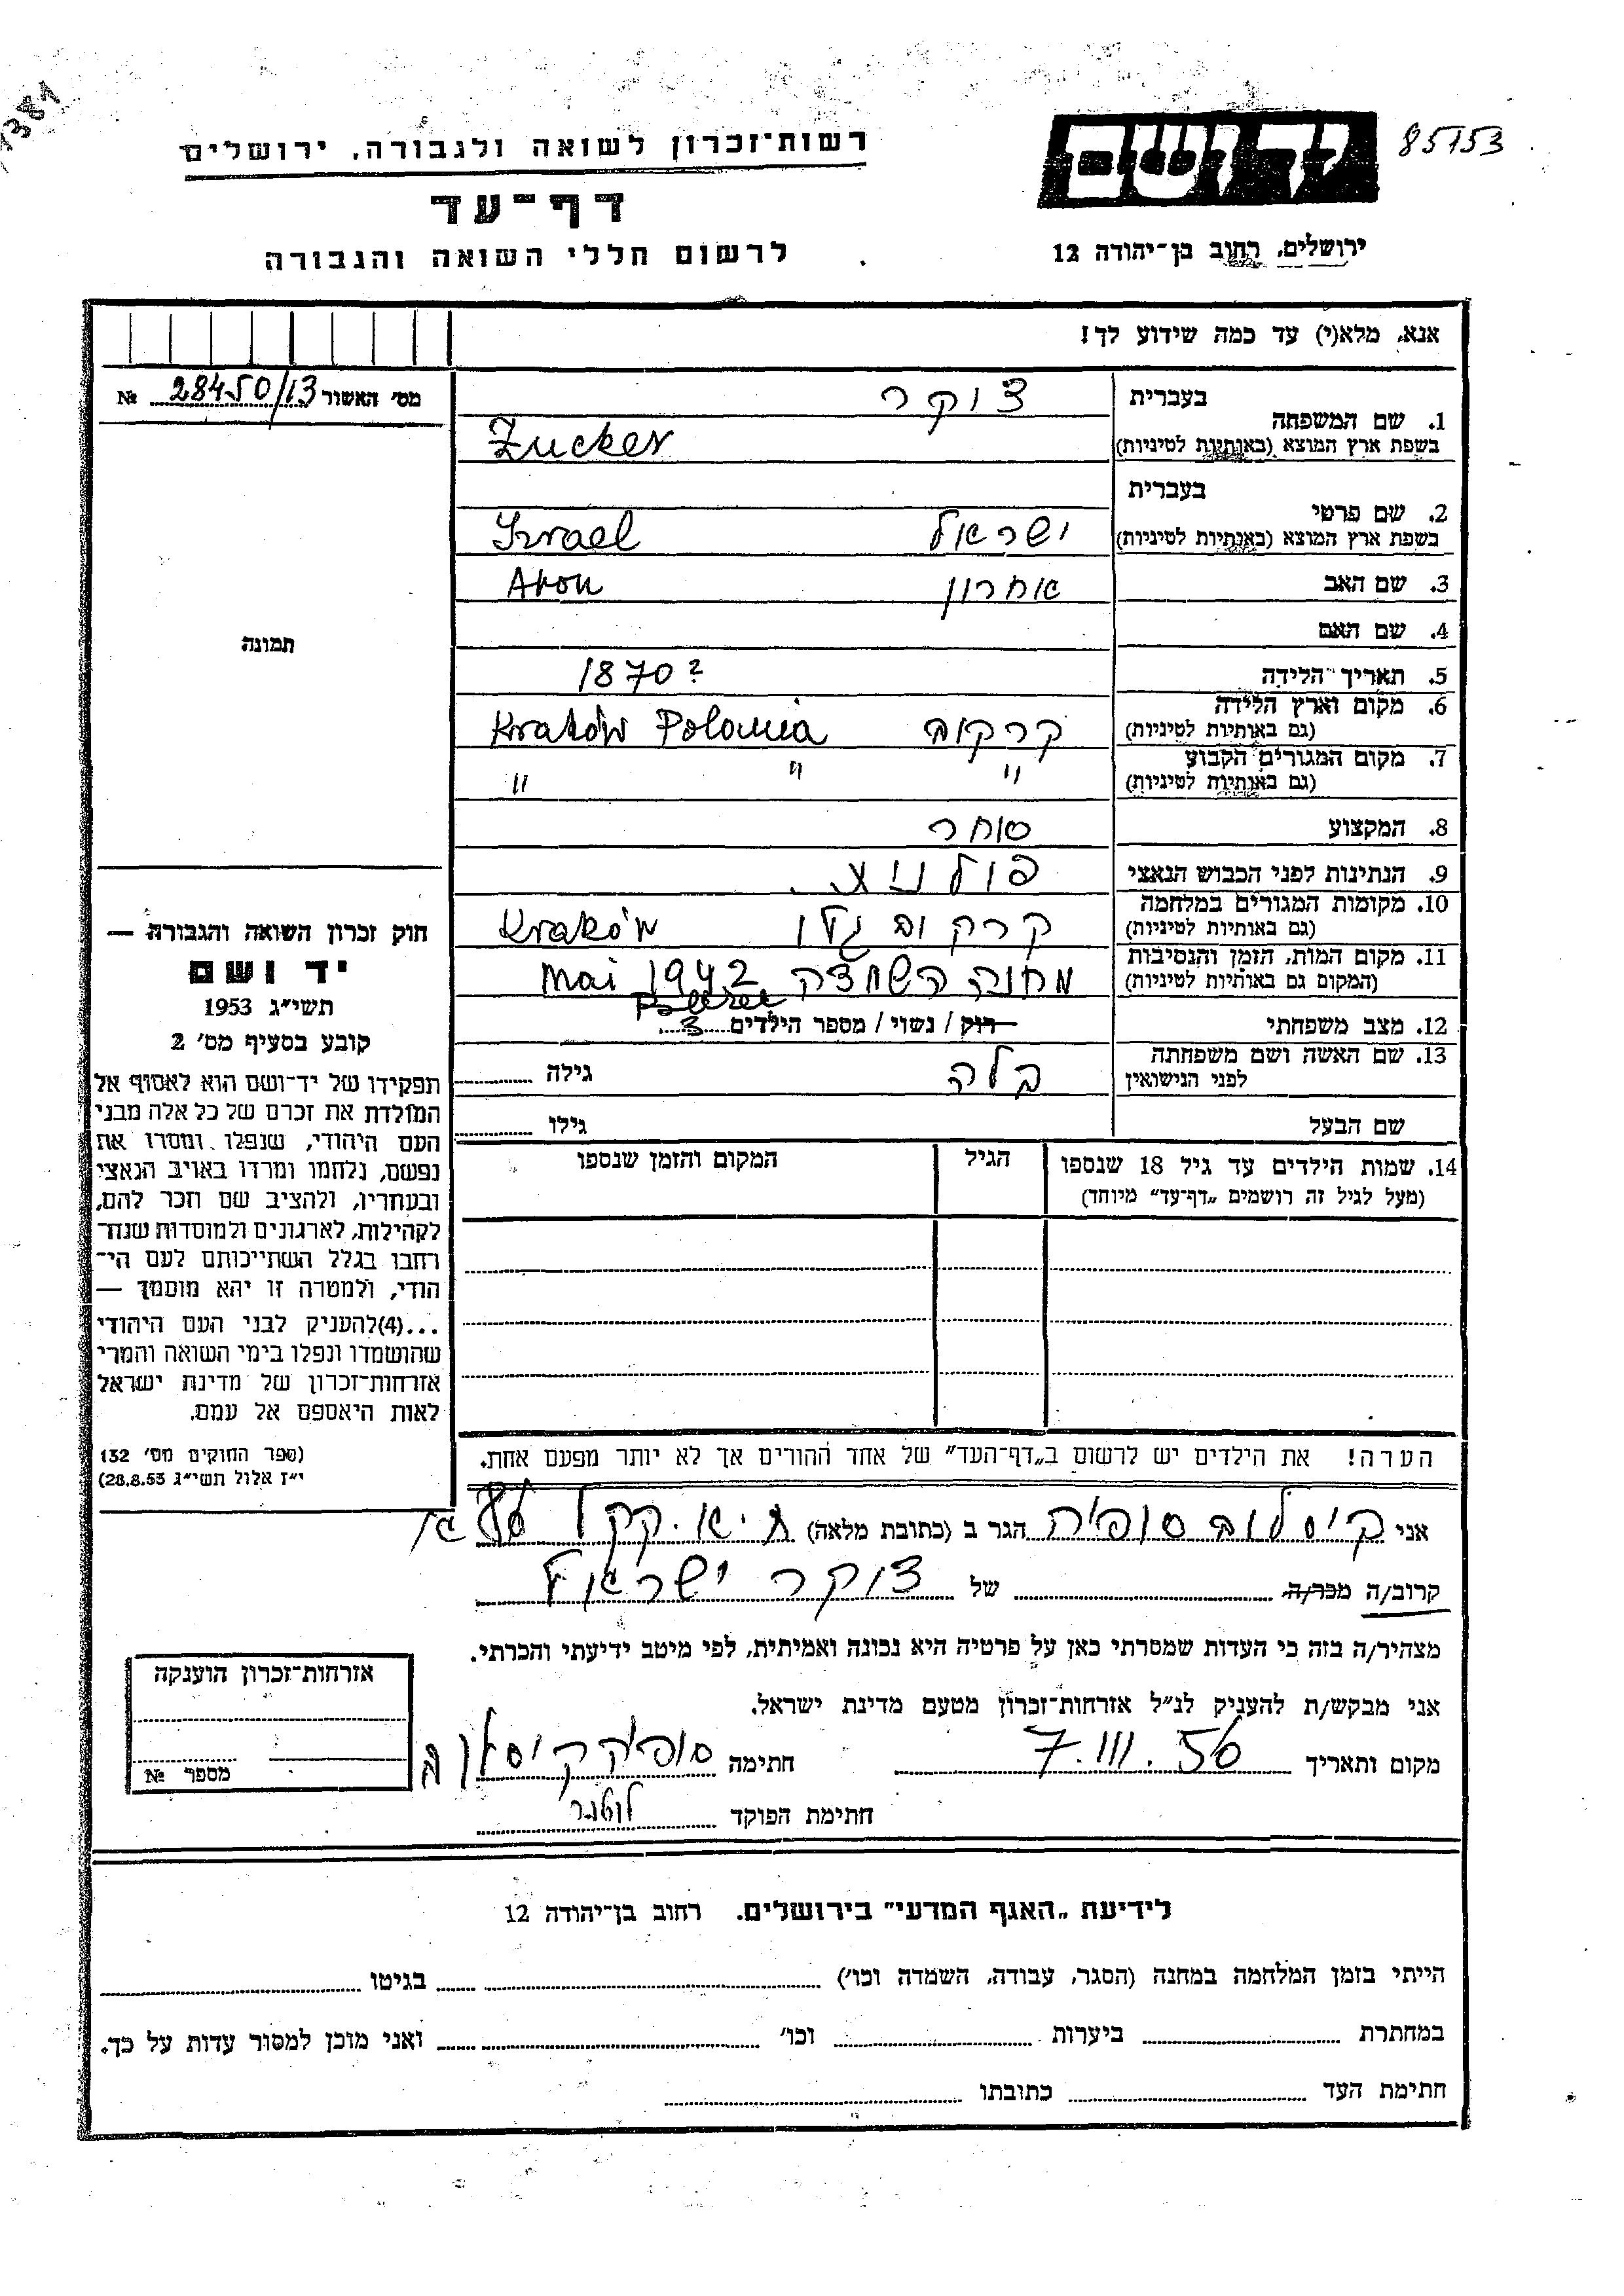 381
85153
יד ושם
רשות־זכרון לשואה ולגבורה, ירושלים
דף־עד
לרשום חללי השואה והגבורה
ירושלים, רחוב בן־יהודה 12
אנא, מלא(י) עד כמה שידוע לך!
מס׳ האשור 28450/13 №
1. שם המשפחה
בעברית
צוקר
בשפת ארץ המוצא (באותיות לטיניות)
Zucker
2. שם פרטי
בעברית
ישראל
בשפת ארץ המוצא (באותיות לטיניות)
Izrael
3. שם האב
אהרון Aron
4. שם האם
5. תאריך הלידה
1870?
6. מקום וארץ הלידה
(גם באותיות לטיניות)
קרקוב Kraków Polonia
7. מקום המגורים הקבוע
(גם באותיות לטיניות)
" " "
8. המקצוע
סוחר
9. הנתינות לפני הכבוש הנאצי
פולנית
10. מקומות המגורים במלחמה
(גם באותיות לטיניות)
קרקוב גטו Kraków
11. מקום המות, הזמן והנסיבות
(המקום גם באותיות לטיניות)
מחנה השמדה Mai 1942
12. מצב משפחתי
רוק / נשוי / מספר הילדים 3
13. שם האשה ושם משפחתה
לפני הנישואין
בלה
גילה
שם הבעל
גילו
14. שמות הילדים עד גיל 18 שנספו
(מעל לגיל זה רושמים „דף־עד״ מיוחד)
הגיל
המקום והזמן שנספו
תמונה
חוק זכרון השואה והגבורה —
יד ושם
תשי״ג 1953
קובע בסעיף מס׳ 2
תפקידו של יד־ושם הוא לאסוף אל
המולדת את זכרם של כל אלה מבני
העם היהודי, שנפלו ומסרו את
נפשם, נלחמו ומרדו באויב הנאצי
ובעוזריו, ולהציב שם וזכר להם,
לקהילות, לארגונים ולמוסדות שנח־
רחבו בגלל השתייכותם לעם הי־
הודי, ולמטרה זו יהא מוסמך —
...(4)להעניק לבני העם היהודי
שהושמדו ונפלו בימי השואה והמרי
אזרחות־זכרון של מדינת ישראל
לאות היאספם אל עמם.
(ספר החוקים מס׳ 132
י״ז אלול תשי״ג 28.8.53)
הערה! את הילדים יש לרשום ב„דף־העד״ של אחד ההורים אך לא יותר מפעם אחת.
אני קיסלוב סופיה הגר ב (כתובת מלאה) ת״א. קקל
קרוב/ה מכר/ה של צוקר ישראל
מצהיר/ה בזה כי העדות שמסרתי כאן על פרטיה היא נכונה ואמיתית, לפי מיטב ידיעתי והכרתי.
אני מבקש/ת להעניק לנ״ל אזרחות־זכרון מטעם מדינת ישראל.
מקום ותאריך 7.III.56 חתימה סופיה קיסלוב
חתימת הפוקד
אזרחות־זכרון הוענקה
מספר №
לידיעת „האגף המדעי״ בירושלים. רחוב בן־יהודה 12
הייתי בזמן המלחמה במחנה (הסגר, עבודה, השמדה וכו׳) בגיטו
במחתרת ביערות וכו׳ ואני מוכן למסור עדות על כך.
חתימת העד כתובתו